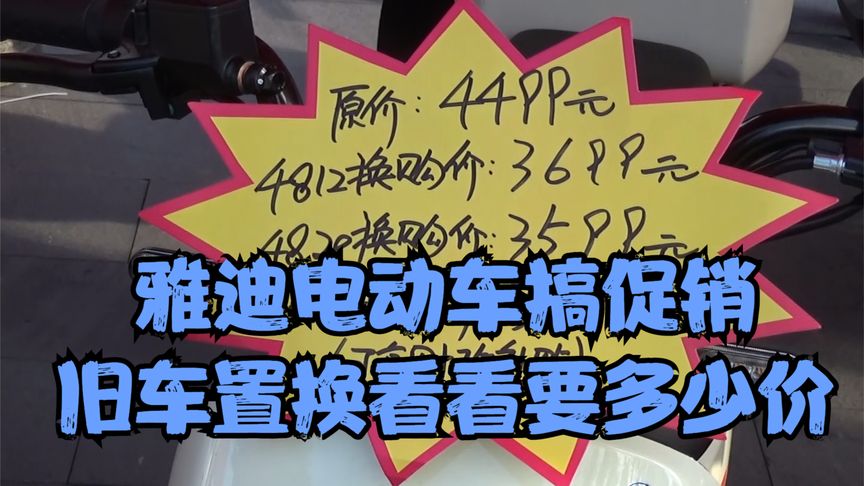 原价：4499元
4812换购价：3699元
4820换购价：3599元
雅迪电动车搞促销
旧车置换看看要多少价